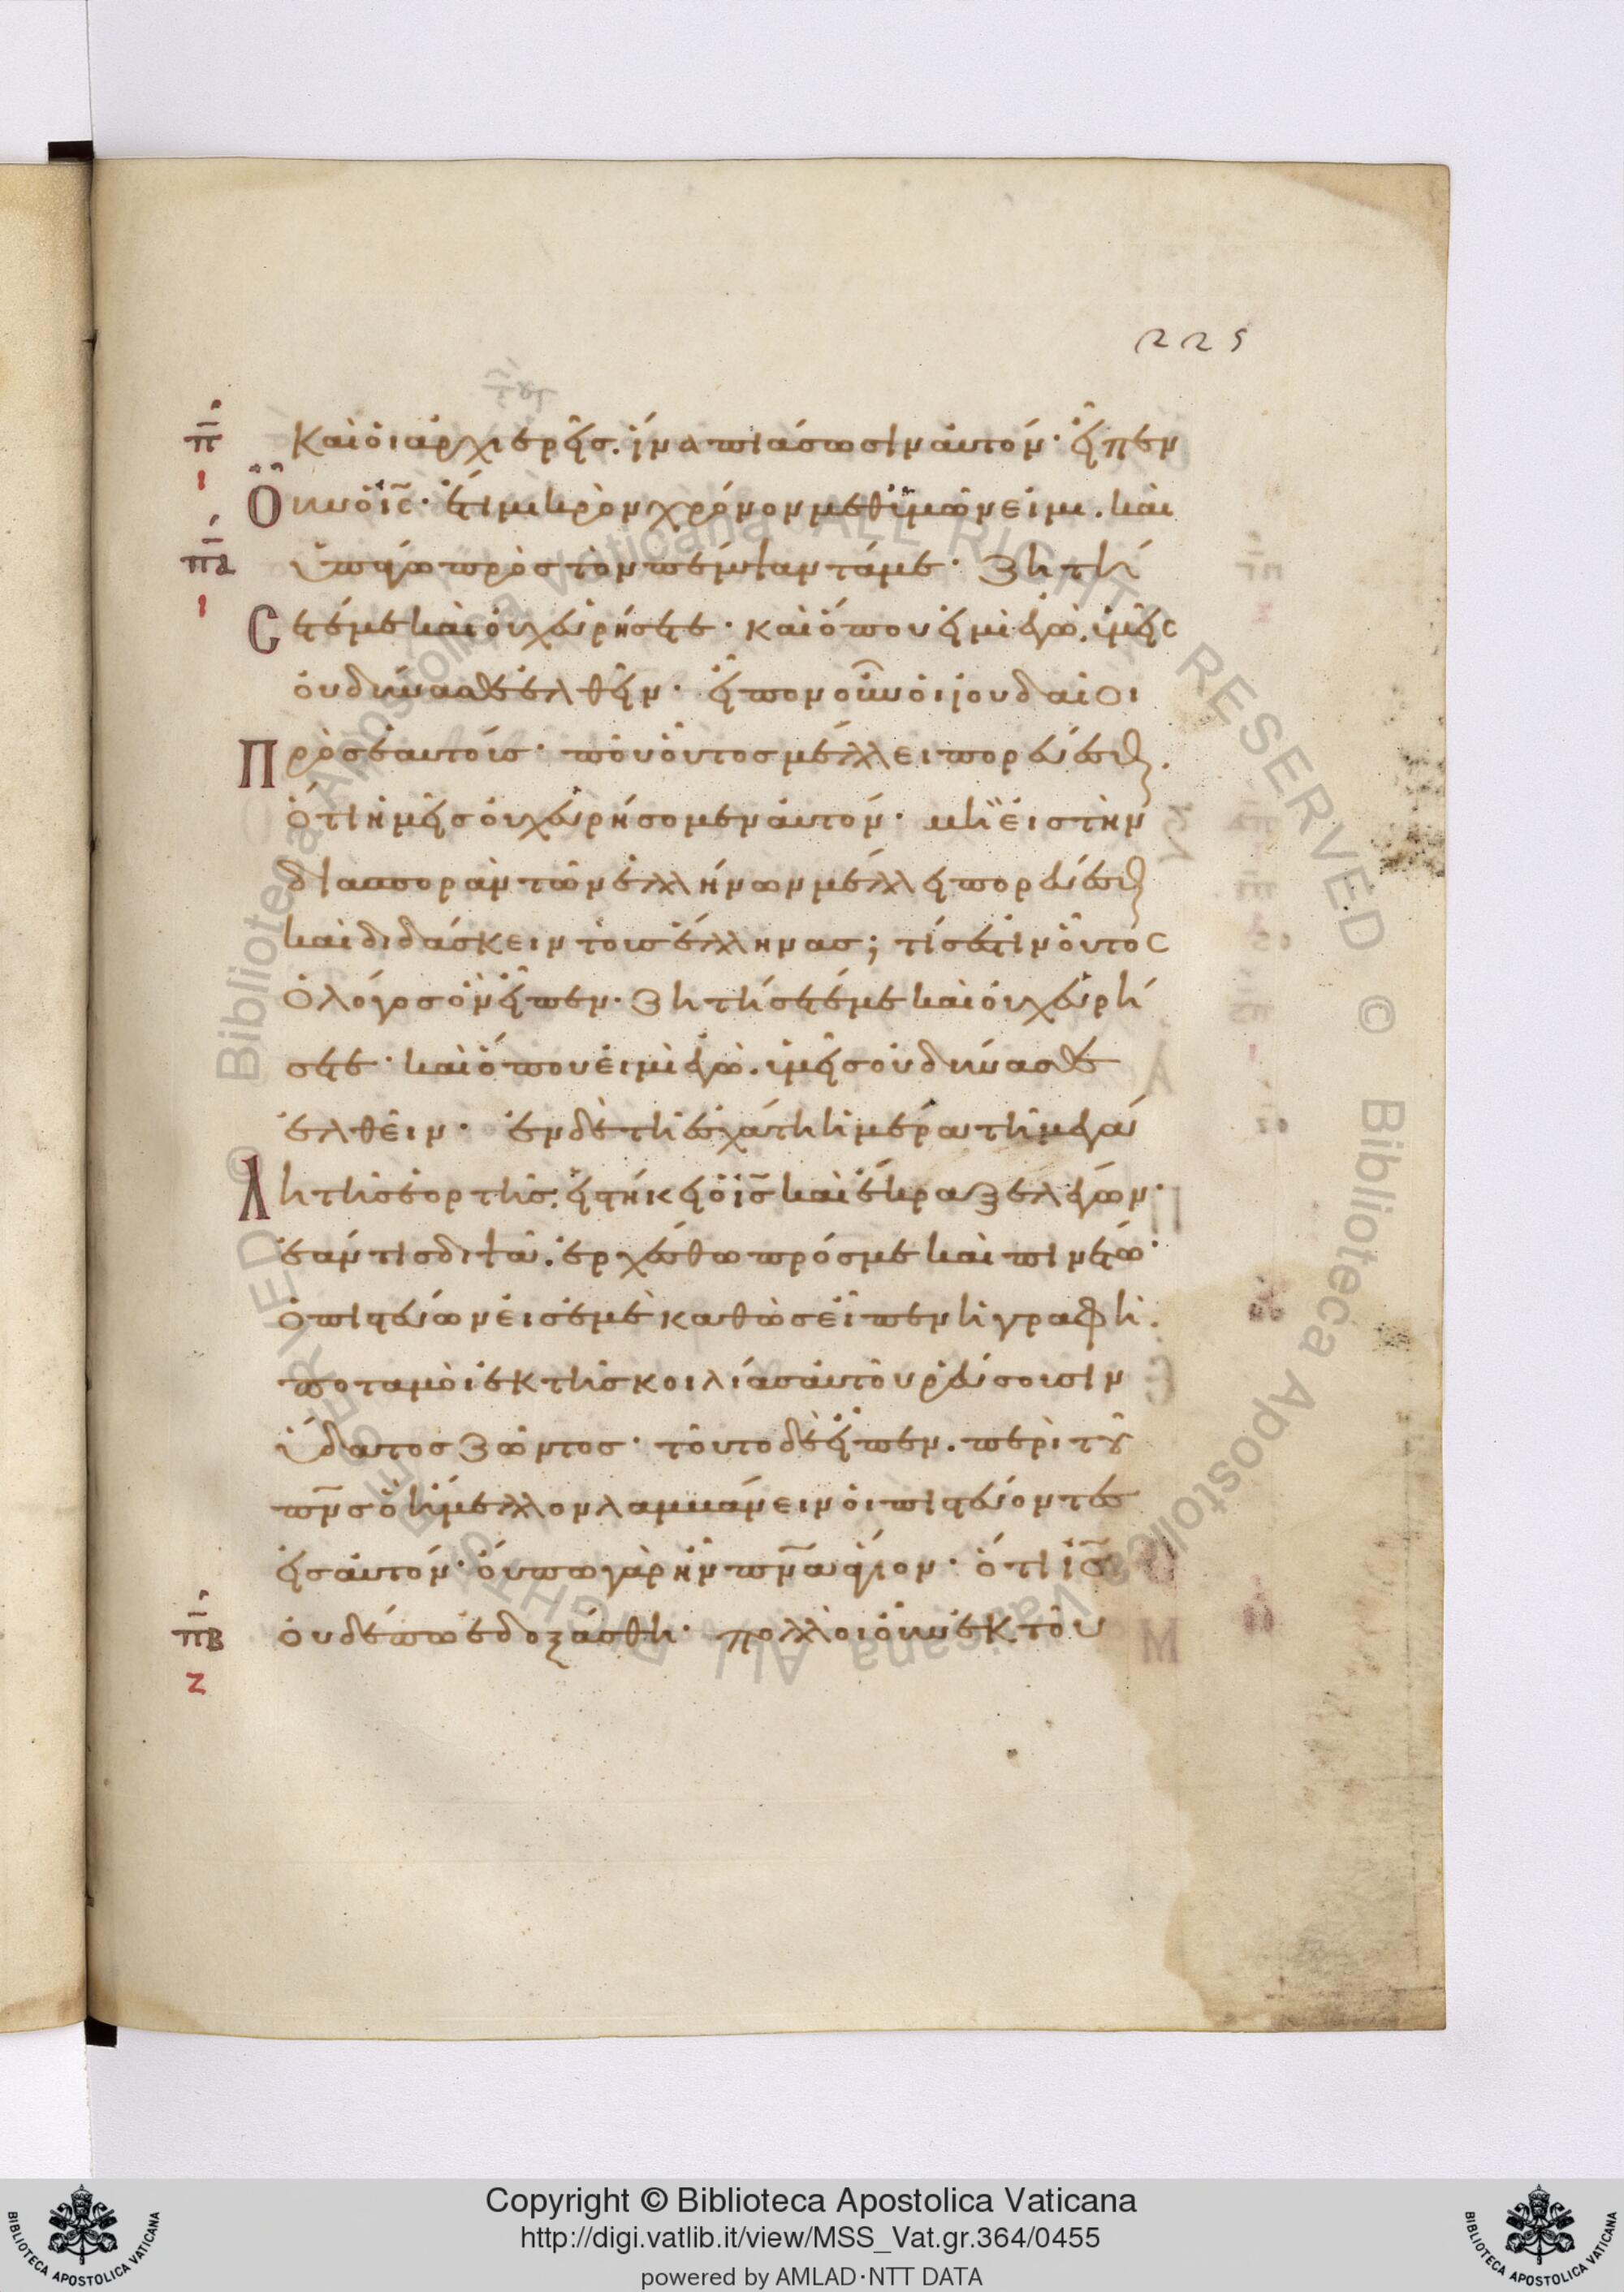 225
π̄
καὶ οἱ ἀρχιερεῖς. ἵνα πιάσωσιν αὐτόν· εἶπεν
ι
Οὖν ὁ ις̄· ἔτι μικρὸν χρόνον μεθ ὑμῶν εἰμι. καὶ
π̄α
ὑπάγω πρὸς τὸν πέμψαντά με· ζητή
ι
Σετέ με καὶ οὐχ εὑρήσετε· καὶ ὅπου εἰμὶ ἐγὼ. ὑμεῖς
οὐ δύνασθε ἐλθεῖν· εἶπον οὖν οἱ ἰουδαίοι
Πρὸς ἑαυτοὺς· ποῦ οὗτος μέλλει πορεύεσθαι.
ὅτι ἡμεῖς οὐχ εὑρήσομεν αὐτόν· μὴ εἰς τὴν
διασπορὰν τῶν ἑλλήνων μέλλει πορεύεσθαι
καὶ διδάσκειν τοὺς ἕλληνας; τίς ἐστιν οὗτος
ὁ λόγος ὃν εἶπεν· ζητήσετέ με καὶ οὐχ εὑρή
σετε· καὶ ὅπου εἰμὶ ἐγὼ. ὑμεῖς οὐ δύνασθε
ἐλθεῖν· ἐν δὲ τῇ ἐσχάτῃ ἡμέρα τῇ μεγά
Λη τῆς ἑορτῆς. εἱστήκει ὁ ις̄ καὶ ἔκραζε λέγων·
ἐάν τις διψᾶ. ἐρχέσθω πρός με καὶ πινέτω·
ὁ πιστεύων εἰς ἐμὲ καθὼς εἶπεν ἡ γραφὴ.
ποταμοὶ ἐκ τῆς κοιλίας αὐτοῦ ῥεύσουσιν
ὕδατος ζῶντος· τοῦτο δὲ εἶπεν. περὶ τοῦ
πν̄ς οὗ ἤμελλον λαμβάνειν οἱ πιστεύοντες
εἰς αὐτόν· οὔπω γὰρ ἦν πν̄α ἅγιον· ὅτι ις̄
π̄β
οὐδέπω ἐδοξάσθη· πολλοὶ οὖν ἐκ τοῦ
ζ
Copyright © Biblioteca Apostolica Vaticana
http://digi.vatlib.it/view/MSS_Vat.gr.364/0455
powered by AMLAD·NTT DATA
BIBLIOTECA APOSTOLICA VATICANA
BIBLIOTECA APOSTOLICA VATICANA
© Biblioteca Apostolica Vaticana ALL RIGHTS RESERVED
© Biblioteca Apostolica Vaticana ALL RIGHTS RESERVED